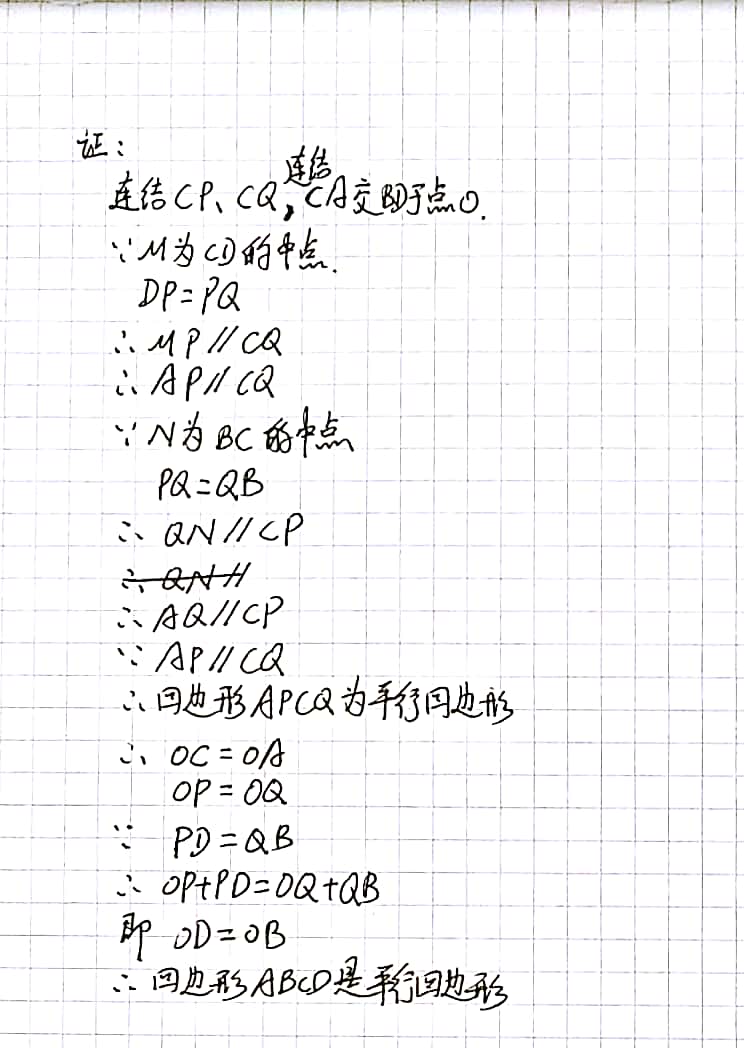 证：
连结CP、CQ，连结CA交BD于点O.
∵M为CD的中点.
DP=PQ
∴MP∥CQ
∴AP∥CQ
∵N为BC的中点
PQ=QB
∴QN∥CP
∴QN∥
∴AQ∥CP
∵AP∥CQ
∴四边形APCQ为平行四边形
∴OC=OA
OP=OQ
∵PD=QB
∴OP+PD=OQ+QB
即OD=OB
∴四边形ABCD是平行四边形